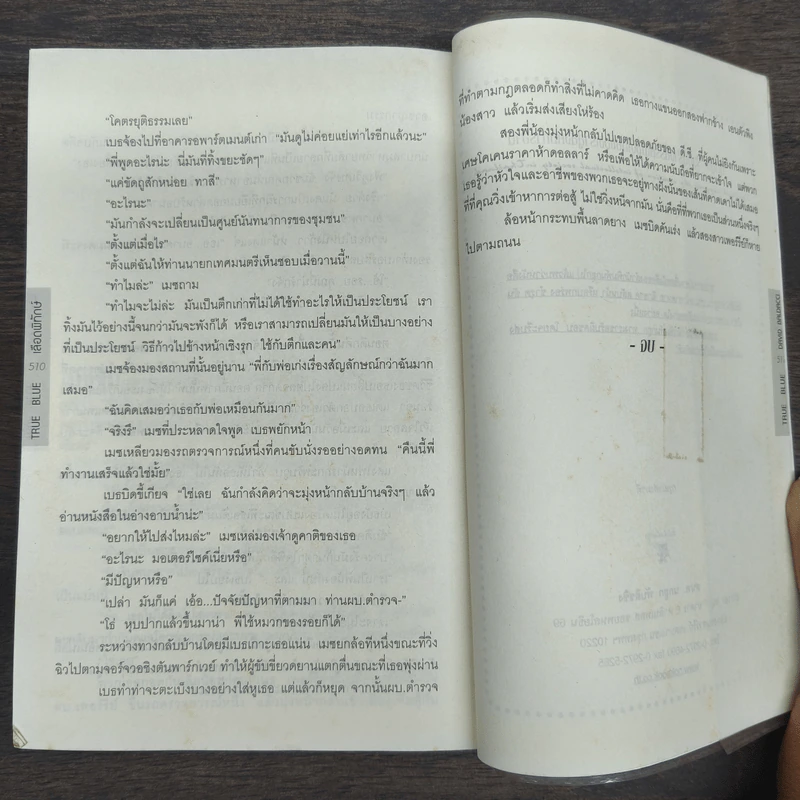 “โคตรยุติธรรมเลย”
เบธจ้องไปที่อาคารอพาร์ตเมนต์เก่า “มันดูไม่ค่อยแย่เท่าไรอีกแล้วนะ”
“พี่พูดอะไรน่ะ นี่มันที่ทิ้งขยะชัดๆ”
“แค่ขัดถูสักหน่อย ทาสี”
“อะไรนะ”
“มันกำลังจะเปลี่ยนเป็นศูนย์นันทนาการของชุมชน”
“ตั้งแต่เมื่อไร”
“ตั้งแต่ฉันให้ท่านนายกเทศมนตรีเห็นชอบเมื่อวานนี้”
“ทำไมล่ะ” เมซถาม
“ทำไมจะไม่ล่ะ มันเป็นตึกเก่าที่ไม่ได้ใช้ทำอะไรให้เป็นประโยชน์ เรา
ทิ้งมันไว้อย่างนี้จนกว่ามันจะพังก็ได้ หรือเราสามารถเปลี่ยนมันให้เป็นบางอย่าง
ที่เป็นประโยชน์ วิธีก้าวไปข้างหน้าเชิงรุก ใช้กับตึกและคน”
เมซจ้องมองสถานที่นั้นอยู่นาน “พี่กับพ่อเก่งเรื่องสัญลักษณ์กว่าฉันมาก
เสมอ”
“ฉันคิดเสมอว่าเธอกับพ่อเหมือนกันมาก”
“จริงรึ” เมซที่ประหลาดใจพูด เบธพยักหน้า
เมซเหลียวมองรถตรวจการณ์หนึ่งที่คนขับนั่งรออย่างอดทน “คืนนี้พี่
ทำงานเสร็จแล้วใช่มั้ย”
เบธบิดขี้เกียจ “ใช่เลย ฉันกำลังคิดว่าจะมุ่งหน้ากลับบ้านจริงๆ แล้ว
อ่านหนังสือในอ่างอาบน้ำน่ะ”
“อยากให้ไปส่งไหมล่ะ” เมซเหล่มองเจ้าดูคาติของเธอ
“อะไรนะ มอเตอร์ไซค์เนี่ยหรือ”
“มีปัญหาหรือ”
“เปล่า มันก็แค่ เอ้อ...ปัจจัยปัญหาที่ตามมา ท่านผบ.ตำรวจ-”
“โธ่ หุบปากแล้วขึ้นมาน่า พี่ใช้หมวกของรอยก็ได้”
ระหว่างทางกลับบ้านโดยมีเบธเกาะเธอแน่น เมซยกล้อทีหนึ่งขณะที่วิ่ง
ฉิวไปตามจอร์จวอชิงตันพาร์กเวย์ ทำให้ผู้ขับขี่ยวดยานแตกตื่นขณะที่เธอพุ่งผ่าน
เบธทำท่าจะตะเบ็งบางอย่างใส่หูเธอ แต่แล้วก็หยุด จากนั้นผบ.ตำรวจ
TRUE BLUE 510 เลือดพิทักษ์
ที่ทำตามกฎตลอดก็ทำสิ่งที่ไม่คาดคิด เธอกางแขนออกสองฟากข้าง เอนตัวพิง
น้องสาว แล้วเริ่มส่งเสียงโห่ร้อง
สองพี่น้องมุ่งหน้ากลับไปเขตปลอดภัยของ ดี.ซี. ที่ผู้คนไม่ยิงกันเพราะ
เศษโคเคนราคาห้าดอลลาร์ หรือเพื่อให้ได้ความนับถือที่ยากจะเข้าใจ แต่พวก
เธอรู้ว่าหัวใจและอาชีพของพวกเธอจะอยู่ทางฝั่งนั้นของเส้นที่คาดเดาไม่ได้เสมอ
ที่ที่คุณวิ่งเข้าหาการต่อสู้ ไม่ใช่วิ่งหนีจากมัน นั่นคือที่ที่พวกเธอเป็นส่วนหนึ่งจริงๆ
ล้อหน้ากระทบพื้นลาดยาง เมซบิดคันเร่ง แล้วสองสาวเพอร์รีย์ก็หาย
ไปตามถนน
- จบ -
TRUE BLUE DAVID BALDACCI